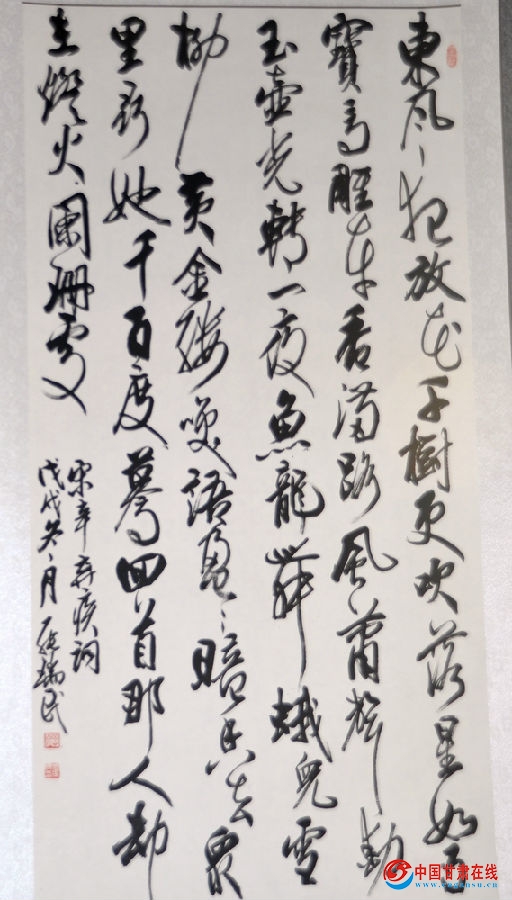 東風夜放花千樹更吹落星如雨
寶馬雕車香滿路風蕭聲動
玉壺光轉一夜魚龍舞蛾兒雪
柳黃金縷笑語盈〻暗香去眾
里尋她千百度驀回首那人卻
在燈火闌珊處
宋辛弃疾詞
戊戌冬月 瑞民
中国甘肃在线